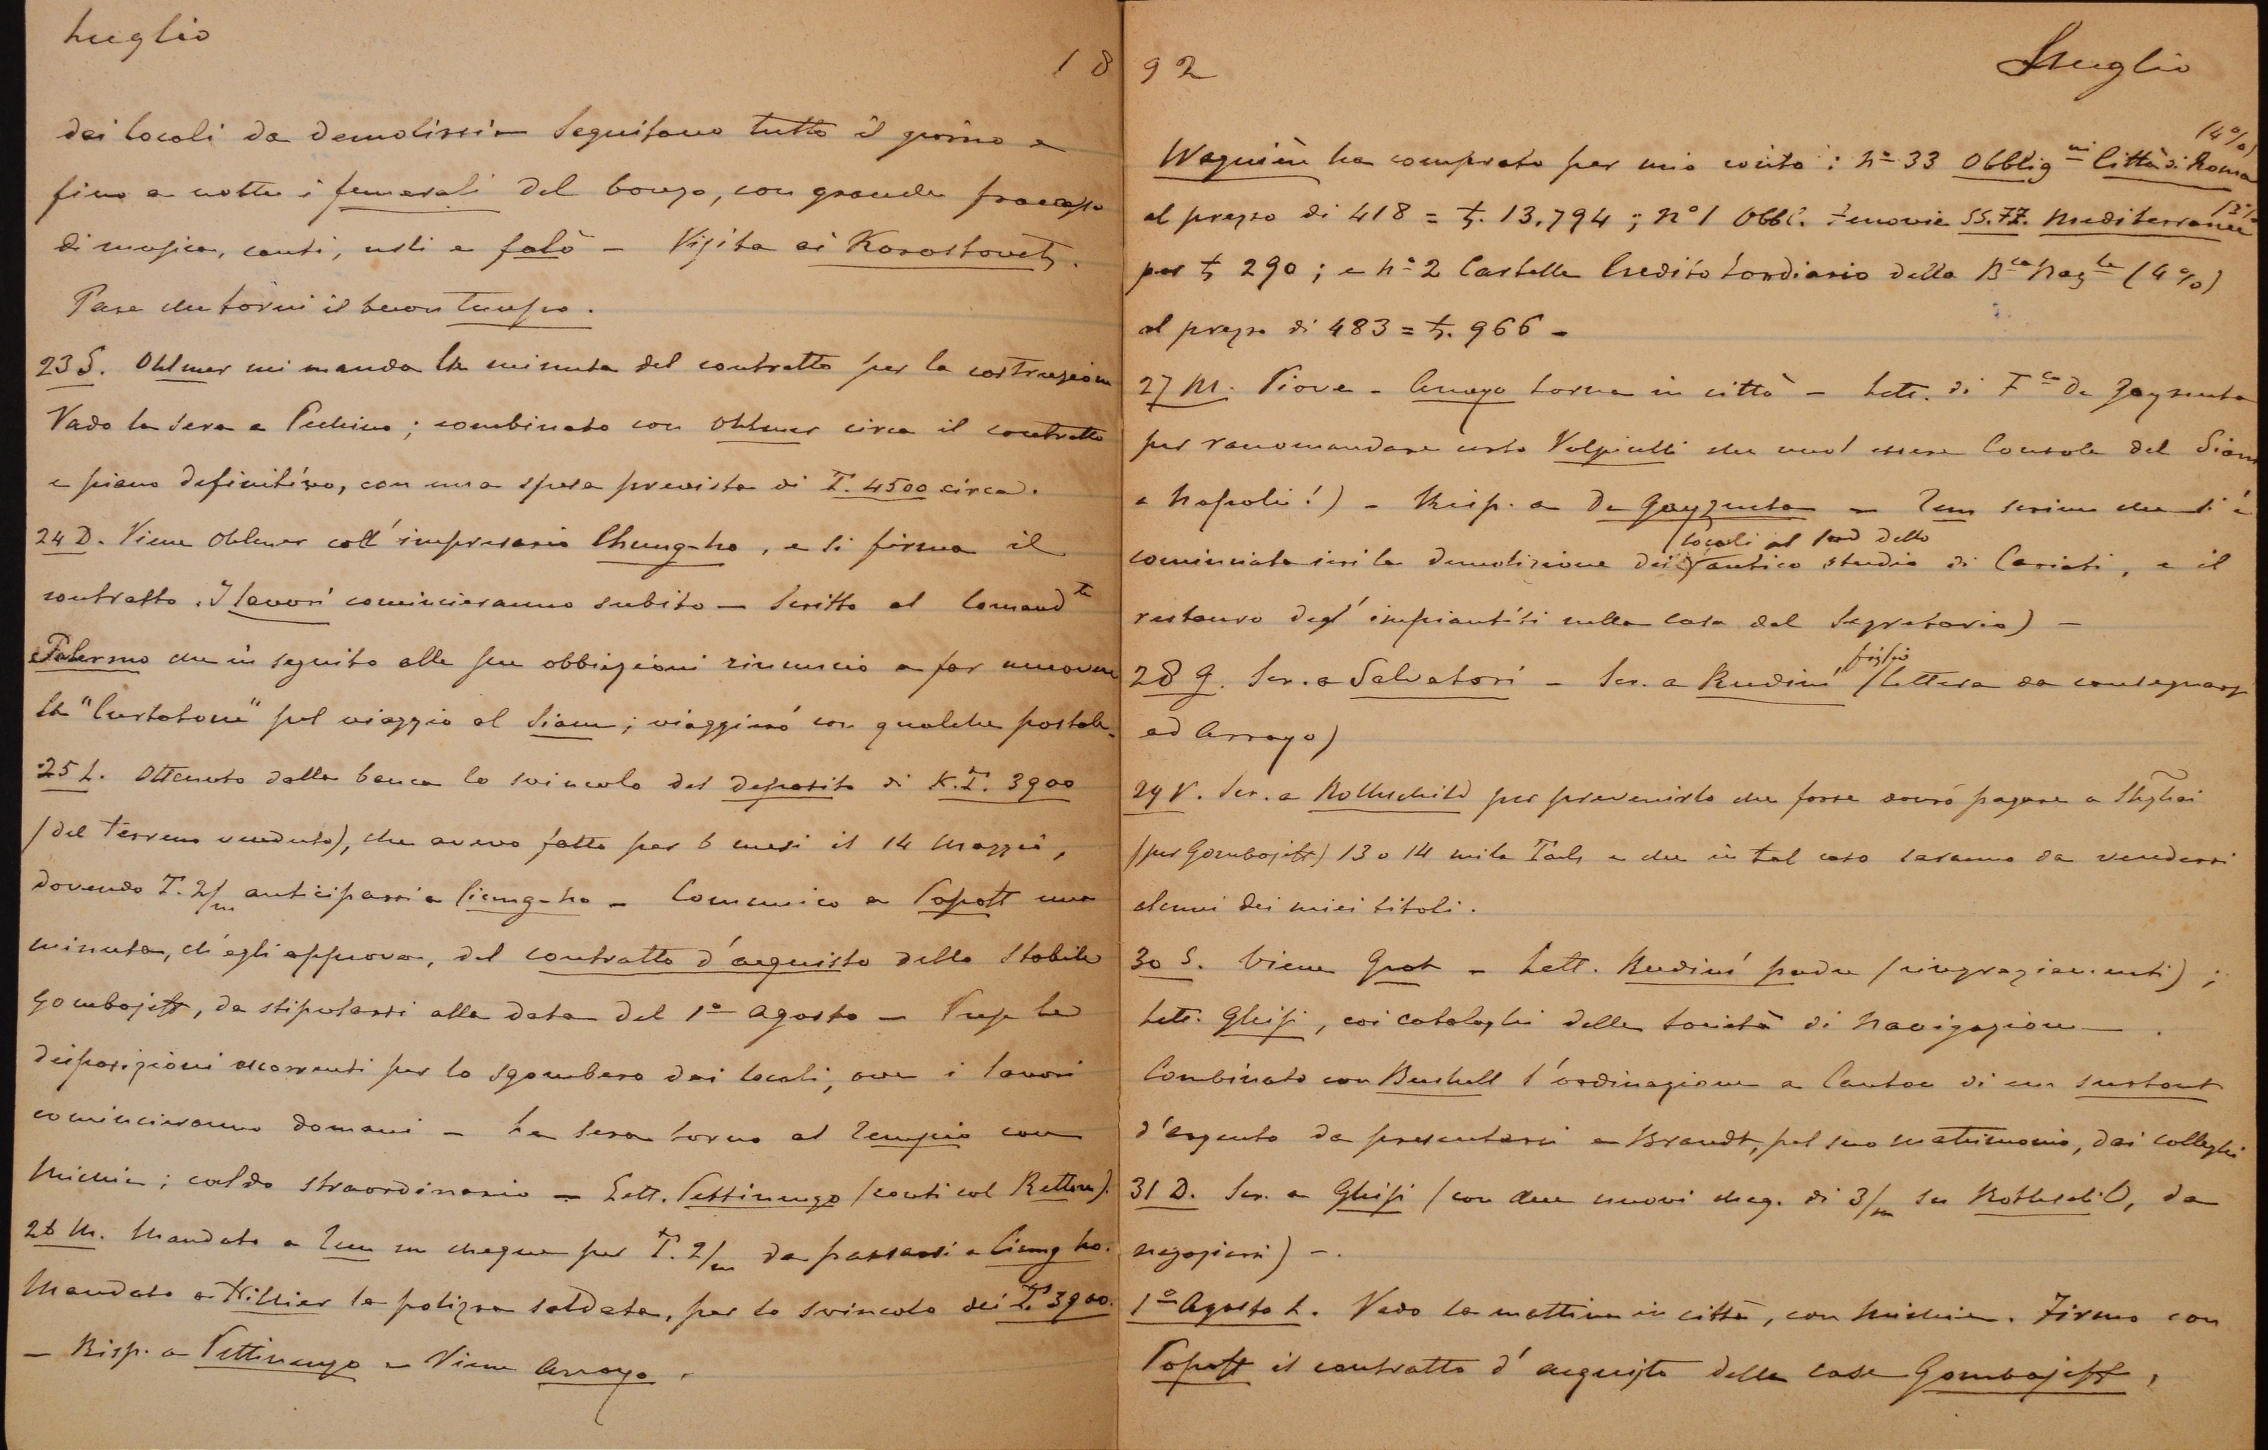 Luglio
18
dei locali da demolirsi - Seguitano tutto il giorno e
fino a notte i funerali del bonzo, con grande fracasso
di musica, canti, urli e falò - Visita ai Korostovetz.
Pare che torni il buon tempo.
23 S. Ohlmer mi manda la minuta del contratto per la costruzione
Vado la sera a Pechino; combinato con Ohlmer circa il contratto
e piano definitivo, con una spesa prevista di T. 4500 circa.
24 D. Viene Ohlmer coll'impresario Chung-ho, e si firma il
contratto. I lavori comincieranno subito - Scritto al Comandte
Palermo che in seguito alle sue obbiezioni rinuncio a far muovere
la "Curtatone" pel viaggio al Siam; viaggierò con qualche postale.
25 L. Ottenuto dalla banca lo svincolo del deposito di K.T. 3900
(del terreno venduto), che avevo fatto per 6 mesi il 14 Maggio,
dovendo T. 2/m anticiparsi a Ciung-ho - Comunico a Popoff una
minuta, ch'egli approva, del contratto d'acquisto dello stabile
Gombojeff, da stipularsi alla data del 1° Agosto - Prese le
disposizioni occorrenti per lo sgombero dei locali, ove i lavori
comincieranno domani - La sera torno al Tempio con
Michie; caldo straordinario - Lett. Pettinengo (conti col Rettore).
26 M. Mandato a Zum un cheque per T. 2/m da passarsi a Ciung ho.
Mandato a Hillier la polizza saldata, per lo svincolo dei Ts 3900.
- Risp. a Pettinengo - Viene Arroyo.
92
Luglio
(4%)
Wagnière ha comprato per mio conto: n° 33 Obbligni Città di Roma
(3%)
al prezzo di 418 = £. 13.794; n° 1 Obbl. Ferrovie SS.FF. Mediterranee
per £ 290; e n° 2 Cartelle Credito Fondiario della Bca Nazle (4%)
al prezzo di 483 = £. 966 -
27 M. Piove - Arroyo torna in città - Lett. di Fco De Gayzueta
per raccomandare certo Volpicelli che vuol essere Console del Siam
a Napoli!) - Risp. a De Gayzueta - Zum scrive che si è
locali al sud dello
cominciata ieri la demolizione dei antico studio di Cariati, e il
restauro degl'impiantiti nella casa del Segretario) -
figlio
28 G. Scr. a Salvatori - Scr. a Rudinì (lettera da consegnarsi
ad Arroyo)
29 V. Scr. a Rothschild per prevenirlo che forse dovrò pagare a Shghai
(per Gombojeff) 13 o 14 mila Taels e che in tal caso saranno da vendersi
alcuni dei miei titoli.
30 S. Viene Grot - Lett. Rudinì padre (ringraziamenti);
Lett. Ghisi, coi cataloghi delle società di navigazione -.
Combinato con Bushell l'ordinazione a Canton di un surtout
d'argento da presentarsi a Brandt, pel suo matrimonio, dai colleghi
31 D. Scr. a Ghisi (con due nuovi cheq. di 3/m su Rothschild, da
negoziarsi) -.
1° Agosto L. Vado la mattina in città, con Michie. Firmo con
Popoff il contratto d'acquisto della casa Gombojeff,